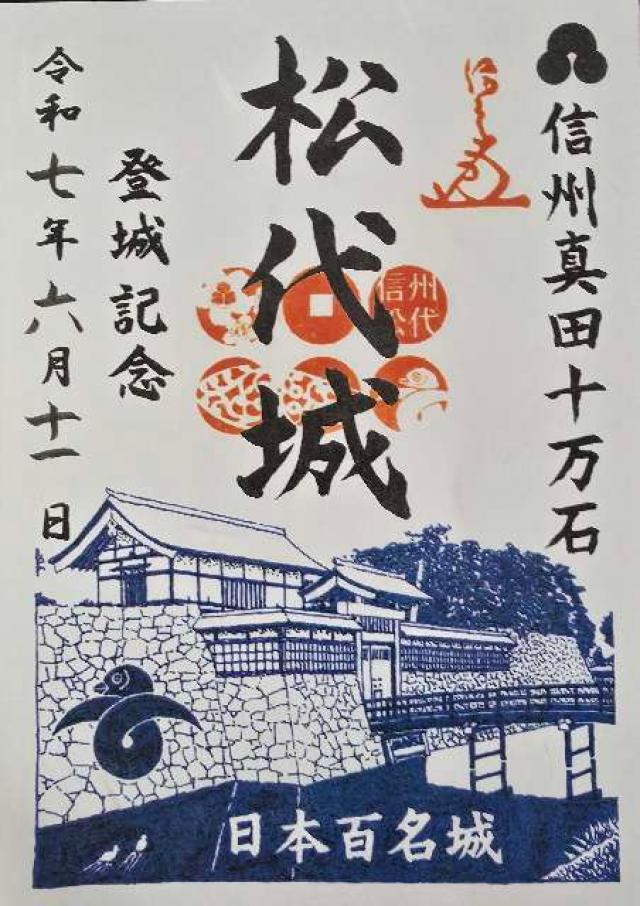 信州真田十万石
松代城
信州
松代
登城記念
令和七年六月十一日
日本百名城